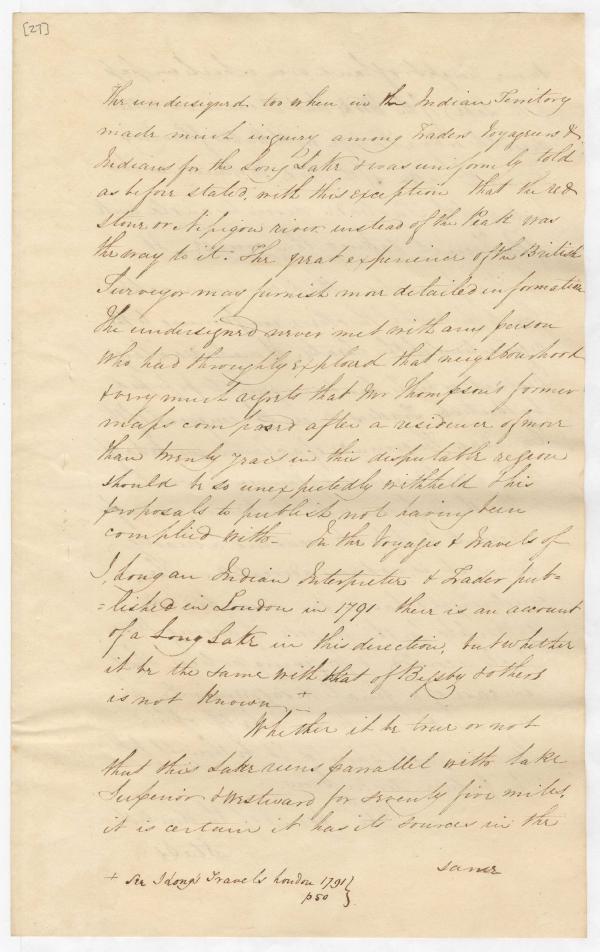 [27]
The undersigned too when in the Indian Territory
made much inquiry among Traders Voyageurs &
Indians for the Long Lake & was uniformly told
as before stated, with this exception that the red
stone or Nipigon river instead of the Peak was
the way to it. The great experience of the British
Surveyor may furnish more detailed information
The undersigned never met with any person
who had throughly explored that neighbourhood
& very much regrets that Mr Thompson's former
maps composed after a residence of more
than twenty years in this disputable region
should be so unexpectedly withheld & his
proposals to publish not having been
complied with - In the Voyages & Travels of
J. Long an Indian Interpreter & Trader pub=
=lished in London in 1791 their is an account
of a Long Lake in this direction, but whether
it be the same with that of Bigsby & others
is not known +
Whether it be true or not
that this Lake runs parrallel with Lake
Superior & westward for seventy five miles,
it is certain it has its sources in the
same
+ See J Long's Travels London 1791 }
p 50 }